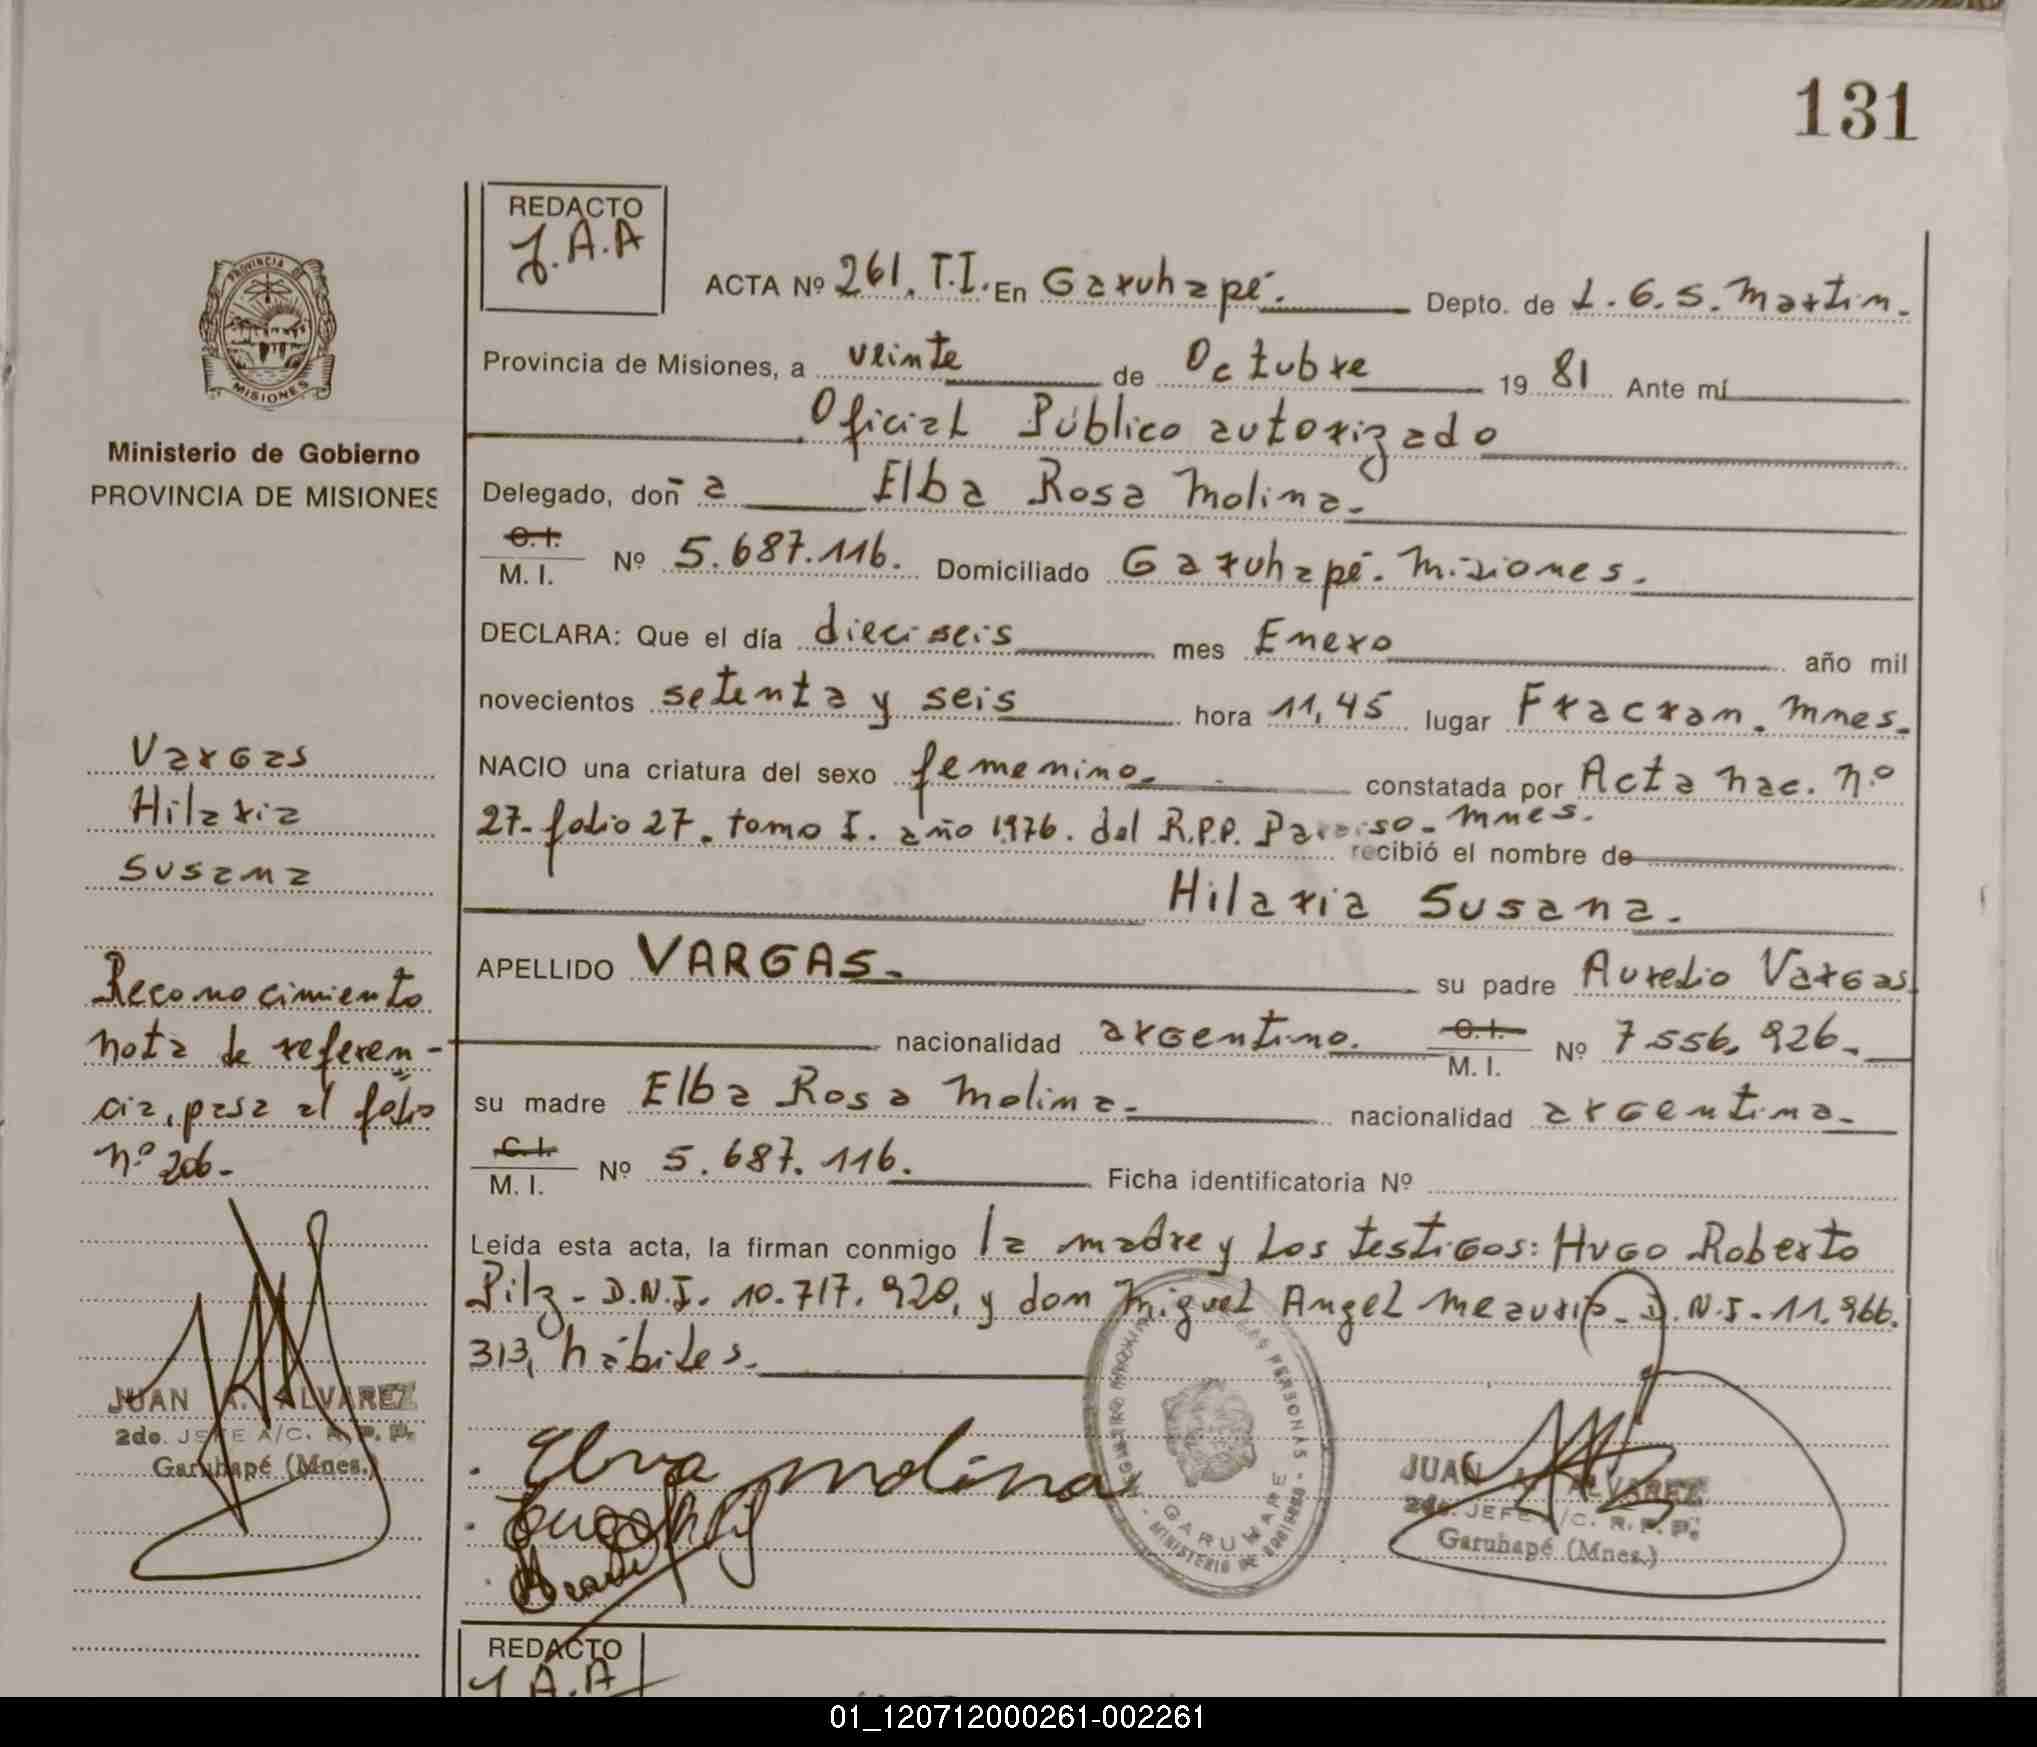 131
REDACTO
J.A.A
ACTA Nº 261. T.I. En Garuhapé. Depto. de L.G.S. Martin.
Provincia de Misiones, a veinte de Octubre 19 81 Ante mí
Oficial Público autorizado
Delegado, don a Elba Rosa Molina.
C.I.
M. I. Nº 5.687.116. Domiciliado Garuhapé. Misiones.
DECLARA: Que el día dieciseis mes Enero año mil
novecientos setenta y seis hora 11,45 lugar Fracran. Mnes.
NACIO una criatura del sexo femenino. constatada por Acta nac. nº
27. folio 27. tomo I. año 1976. del R.P.P. Paraiso. Mnes.
recibió el nombre de
Hilaria Susana.
APELLIDO VARGAS. su padre Aurelio Vargas
nacionalidad argentino. C.I.
M. I. Nº 7.556.926.
su madre Elba Rosa Molina. nacionalidad argentina.
C.I.
M. I. Nº 5.687.116. Ficha identificatoria Nº
Leída esta acta, la firman conmigo la madre y los testigos: Hugo Roberto
Pilz - D.N.I. 10.717.920, y don Miguel Angel Meaurio - D.N.I. 11.966.
313, hábiles.
Elva molina
REGISTRO PROVINCIAL DE LAS PERSONAS
GARUHAPE
MINISTERIO DE GOBIERNO
JUAN A. ALVAREZ
2do. JEFE A/C. R. P. P.
Garuhapé (Mnes.)
PROVINCIA DE
MISIONES
Ministerio de Gobierno
PROVINCIA DE MISIONES
Vargas
Hilaria
Susana
Reconocimiento
nota de referen-
cia, pasa al folio
nº 206.
JUAN A. ALVAREZ
2do. JEFE A/C. R. P. P.
Garuhapé (Mnes.)
REDACTO
J.A.A
01_120712000261-002261